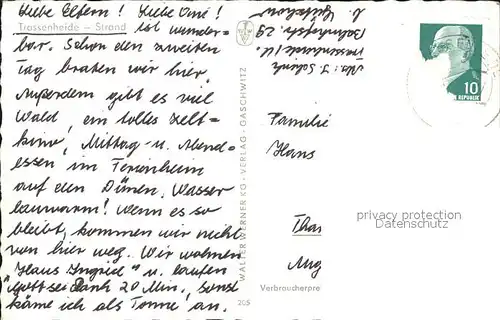 Liebe Eltern! Liebe Omi!
Trassenheide — Strand
ist wunder-
bar. Schon den zweiten
Tag braten wir hier.
Außerdem gibt es viel
Wald, ein tolles Zelt-
kino, Mittag- u. Abend-
essen im Ferienheim
auf den Dünen, Wasser
lauwarm! Wenn es so
bleibt, kommen wir nicht
von hier weg. Wir wohnen
"Haus Ingrid" u. laufen
"Gott sei Dank 20 Min, sonst
käme ich als Tonne an.
205
WALTER WERNER KG · VERLAG · GASCHWITZ
Abs.: J.
Trassenheide
Bahnhofstr. 29
b.
10
REPUBLIK
Familie
Hans
privacy protection
Datenschutz
Verbraucherpre